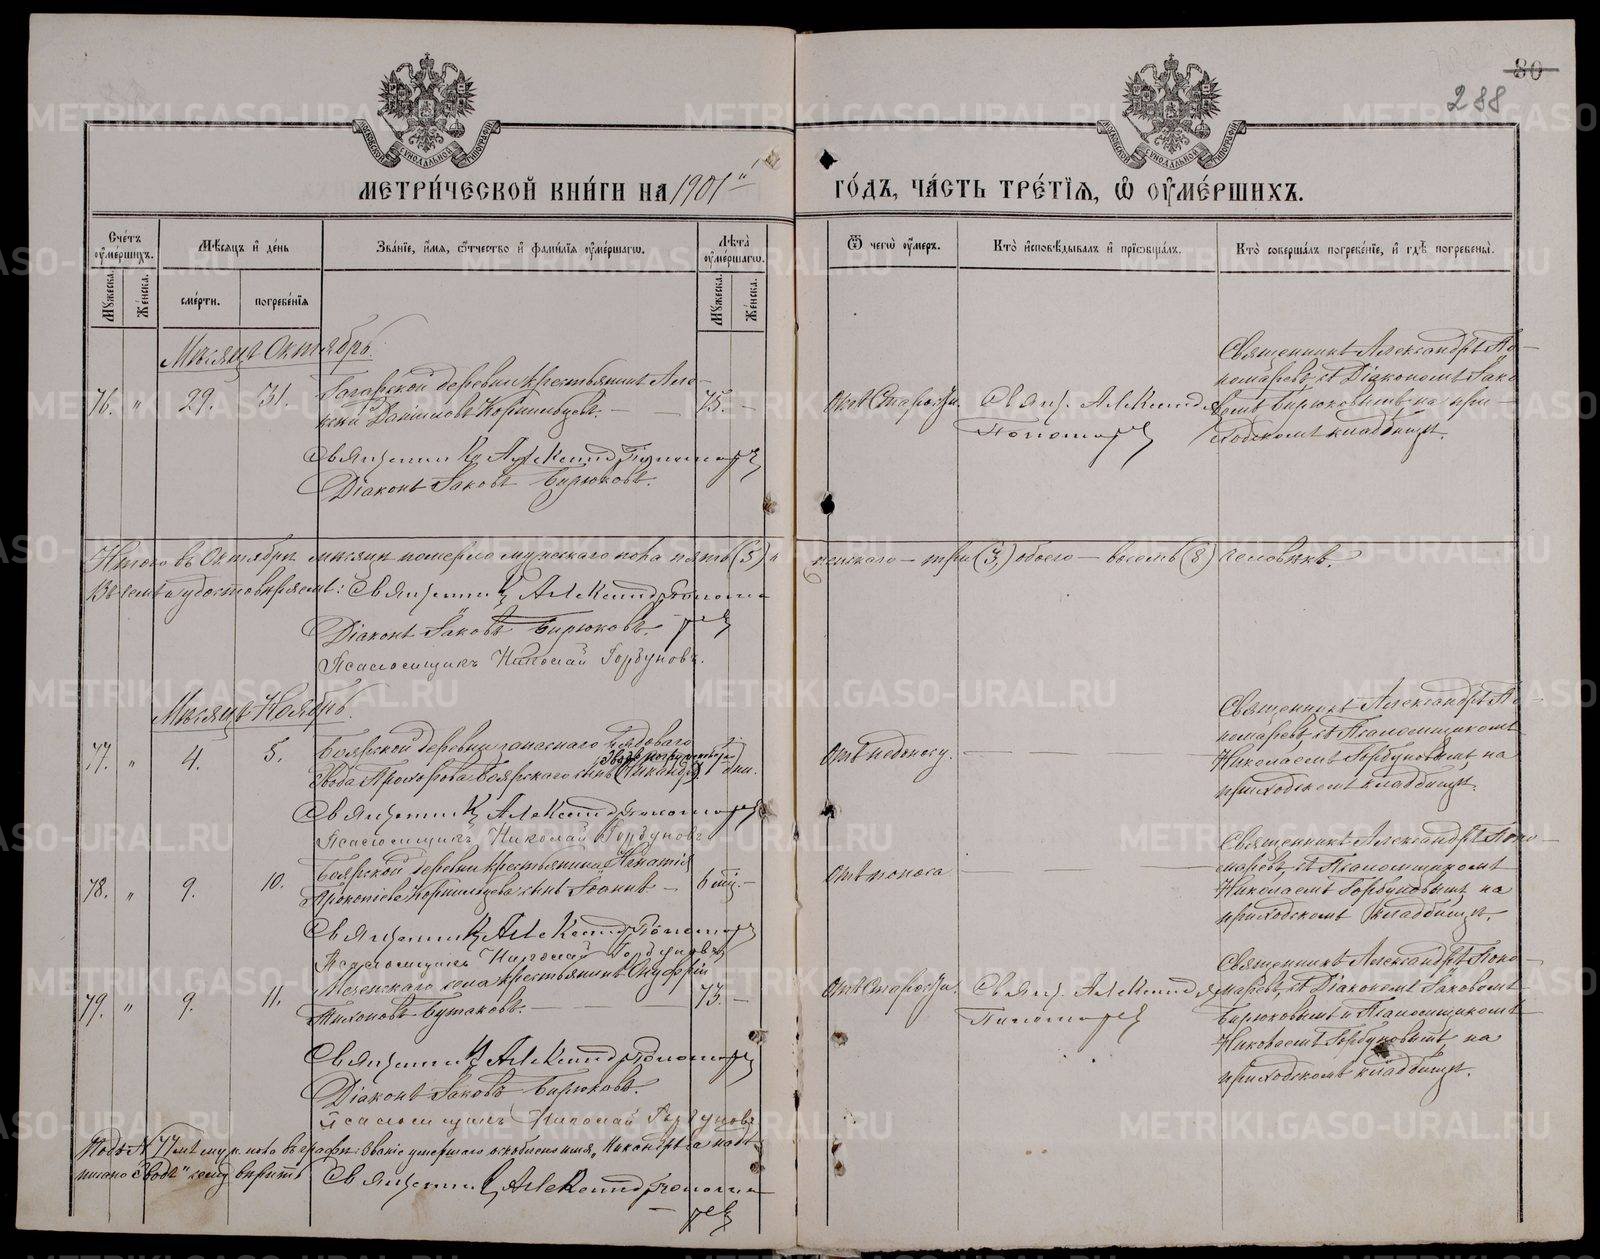 80
288
МЕТРИ́ЧЕСКОЙ КНИ́ГИ НА 1901й ГО́ДЪ, ЧА́СТЬ ТРЕ́ТЇЯ, Ѡ ОУМЕ́РШИХЪ.
Сче́тъ оумершихъ.
Мѣсяцъ и де́нь
Зва́нїе, и́мя, ѻтчество и фами́лїя оуме́ршагѡ.
Лѣта оуме́ршагѡ.
Ѿ чегѡ оу́меръ.
Кто̀ и҆сповѣ́дывалъ и҆ прїѡбща́лъ.
Кто̀ соверша́лъ погребе́нїе, и҆ гдѣ̀ погребены̀.
Мужеска.
Же́нска.
сме́рти.
погребе́нїя
Мужеска.
Же́нска.
Мѣсяцъ Октябрь.
76. " 29. 31.
Гагарской деревни крестьянинъ Але-
ксѣй Данiиловъ Корнильцевъ. — 75. —
Отъ Старости.
Свящ. Александръ
Пономаревъ
Священникъ Александръ По-
номаревъ съ Дiакономъ Iако-
вомъ Бирюковымъ на при-
ходскомъ кладбищѣ.
Священникъ Александръ Пономаревъ
Дiаконъ Iаковъ Бирюковъ.
Итого въ Октябрѣ мѣсяцѣ померло мужескаго пола пять (5) и женскаго — три (3) обоего — восемь (8) человѣкъ.
Въ семъ удостовѣряемъ: Священникъ Александръ Понома-
ревъ
Дiаконъ Iаковъ Бирюковъ.
Псаломщикъ Николай Горбуновъ.
Мѣсяцъ Ноябрь.
77. " 4. 5.
Боярской деревни запаснаго рядоваго
Звода Прохорова Боярскаго сынъ (Никандръ) 1 дни.
Отъ недоносу.
Священникъ Александръ По-
номаревъ съ Псаломщикомъ
Николаемъ Горбуновымъ на
приходскомъ кладбищѣ.
Священникъ Александръ Пономаревъ
Псаломщикъ Николай Горбуновъ
78. " 9. 10.
Боярской деревни крестьянина Игнатiя
Прокопiева Корнильцева сынъ Iоаннъ — 6 мц. —
Отъ поноса
Священникъ Александръ Поно-
маревъ съ Псаломщикомъ
Николаемъ Горбуновымъ на
приходскомъ кладбищѣ.
Священникъ Александръ Пономаревъ
Псаломщикъ Николай Горбуновъ
79. " 9. 11.
Мезенскаго села крестьянинъ Онуфрiй
Тихоновъ Бутаковъ. — 73. —
Отъ Старости.
Свящ. Александръ
Пономаревъ
Священникъ Александръ Поно-
маревъ, съ Дiакономъ Iаковомъ
Бирюковымъ и Псаломщикомъ
Николаемъ Горбуновымъ на
приходскомъ кладбищѣ.
Священникъ Александръ Пономаревъ
Дiаконъ Iаковъ Бирюковъ.
Псаломщикъ Николай Горбуновъ
Подъ № 77мъ муж. пола въ графѣ: званiе умершаго имя „Никандръ" а над-
писано „Зводъ" сему вѣрить
Священникъ Александръ Понома-
ревъ
METRIKI.GASO-URAL.RU